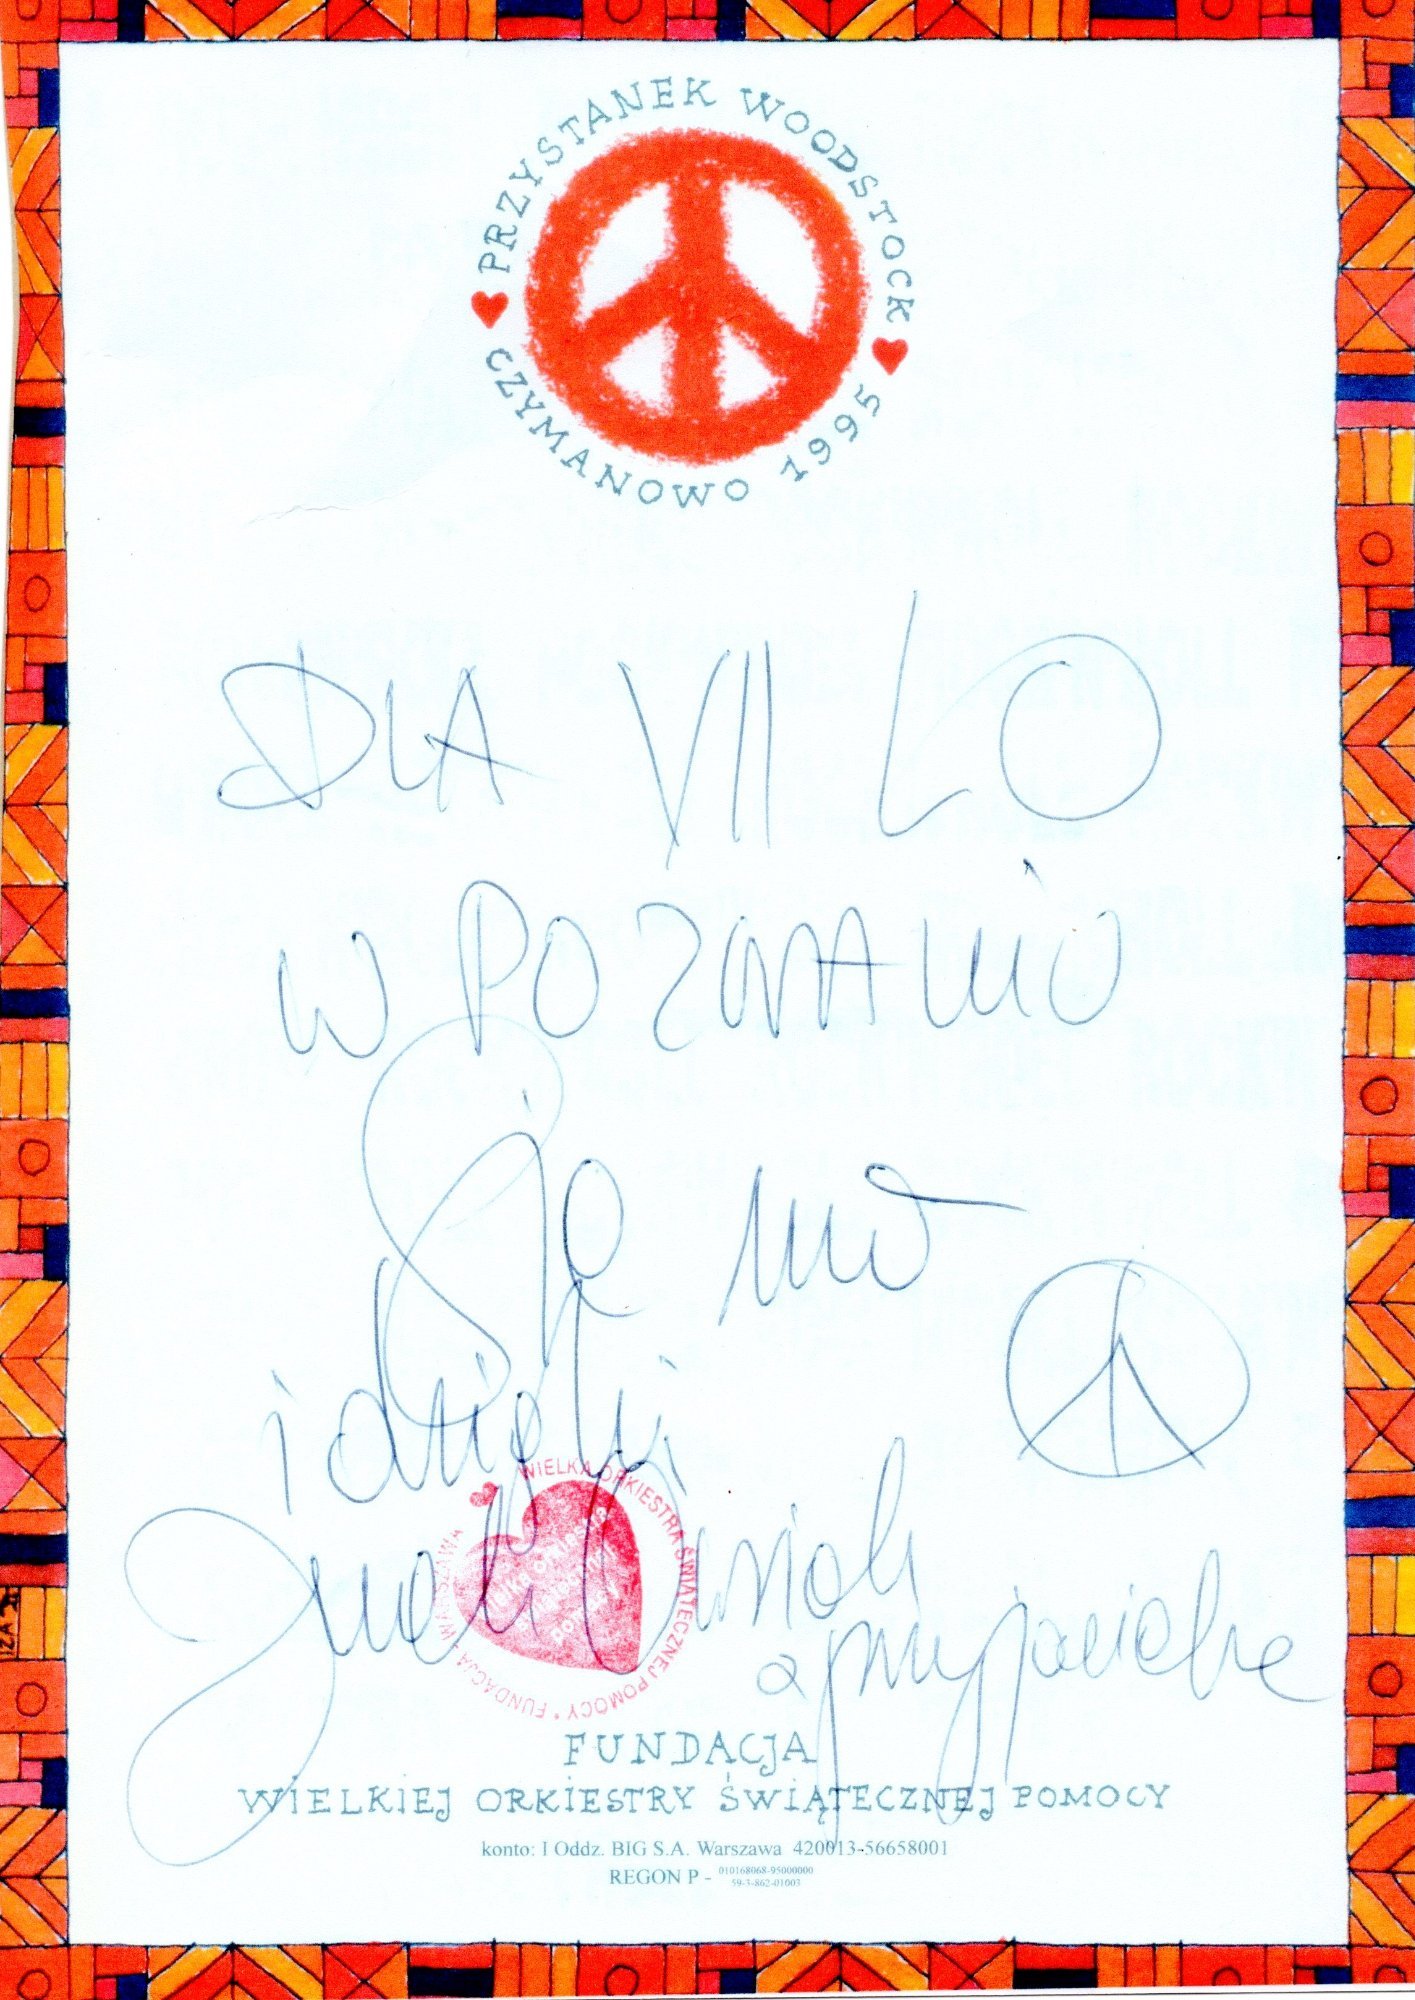 PRZYSTANEK WOODSTOCK
CZYMANOWO 1995
DLA VII LO
W POZNANIU
Się ma
i dzięki
Jurek Owsiak
z przyjaciele
WIELKA ORKIESTRA ŚWIĄTECZNEJ POMOCY * FUNDACJA * WARSZAWA
Wielka Orkiestra
Świątecznej
Pomocy
FUNDACJA
WIELKIEJ ORKIESTRY ŚWIĄTECZNEJ POMOCY
konto: I Oddz. BIG S.A. Warszawa 420013-56658001
REGON P - 010168068-95000000
59-3-862-01003